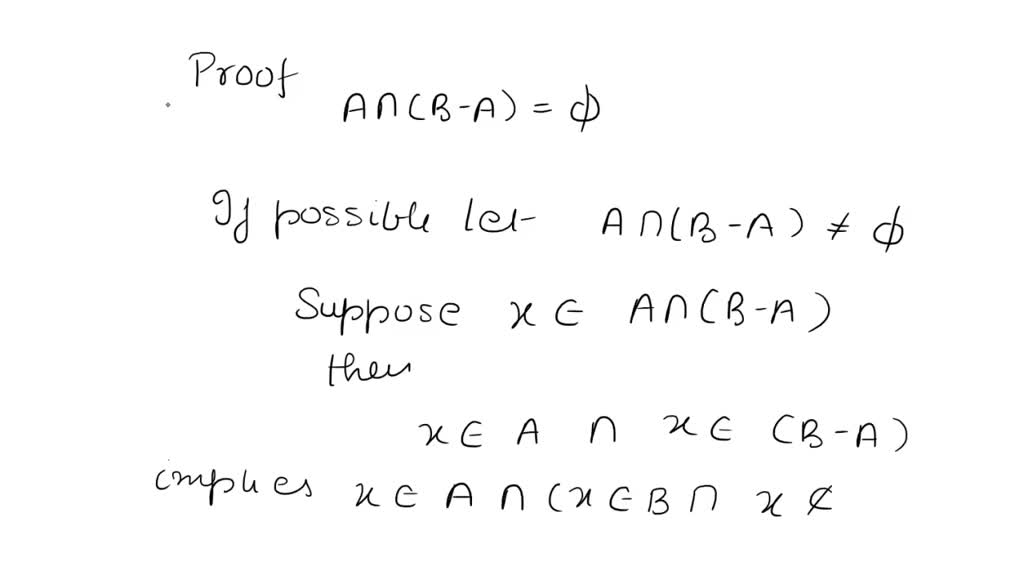 Proof
A∩(B-A) = ϕ
If possible let A∩(B-A) ≠ ϕ
Suppose x ∈ A∩(B-A)
then
x ∈ A ∩ x ∈ (B-A)
implies x ∈ A ∩ (x ∈ B ∩ x ∉